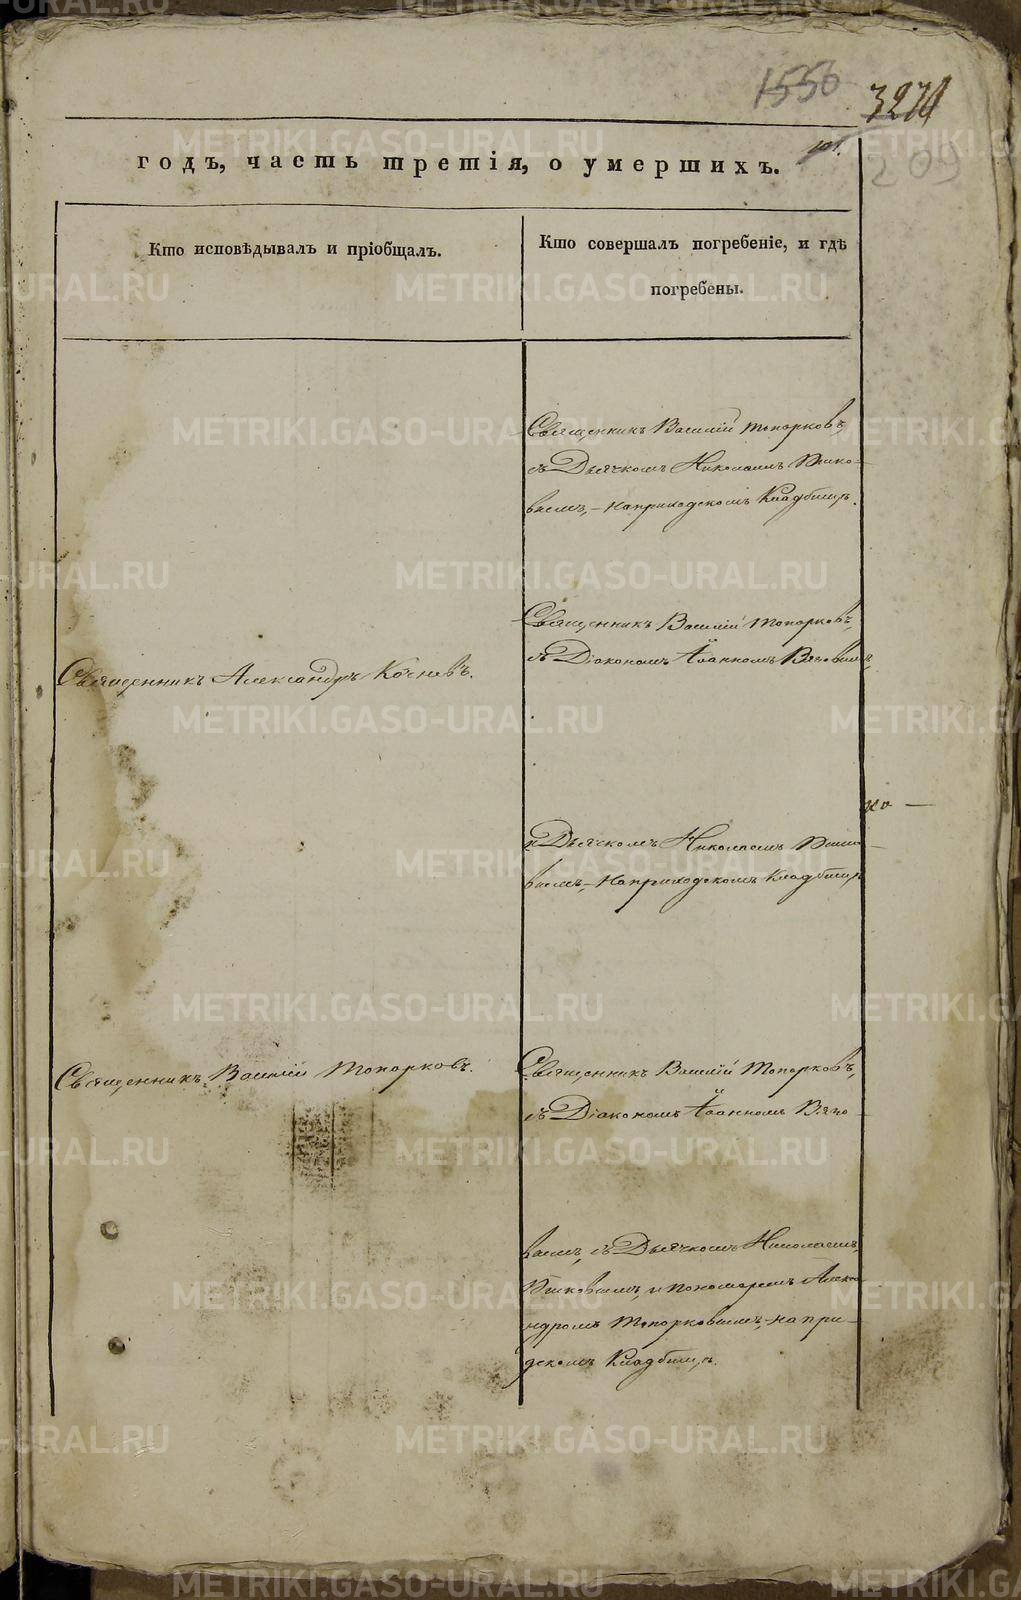 1550
209
годъ, часть третія, о умершихъ.
Кто исповѣдывалъ и пріобщалъ.
Кто совершалъ погребеніе, и гдѣ
погребены.
Священникъ Василій Топорковъ,
съ Дьячкомъ Николаемъ
вымъ, - на приходскомъ Кладбищѣ.
Священникъ Александръ Кочневъ.
Священникъ Василій Топорковъ,
съ Діакономъ Іоанномъ
и Дьячкомъ Николаемъ
вымъ, - на приходскомъ Кладбищѣ
Священникъ Василій Топорковъ.
Священникъ Василій Топорковъ,
съ Діакономъ Іоанномъ
вымъ, съ Дьячкомъ Николаемъ
и пономаремъ Алекса
ндромъ Топорковымъ, - на при-
дскомъ Кладбищѣ.
METRIKI.GASO-URAL.RU